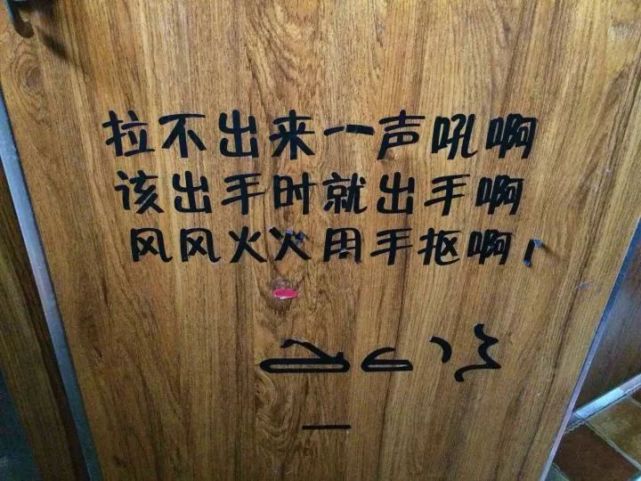 拉不出来一声吼啊
该出手时就出手啊
风风火火用手抠啊！